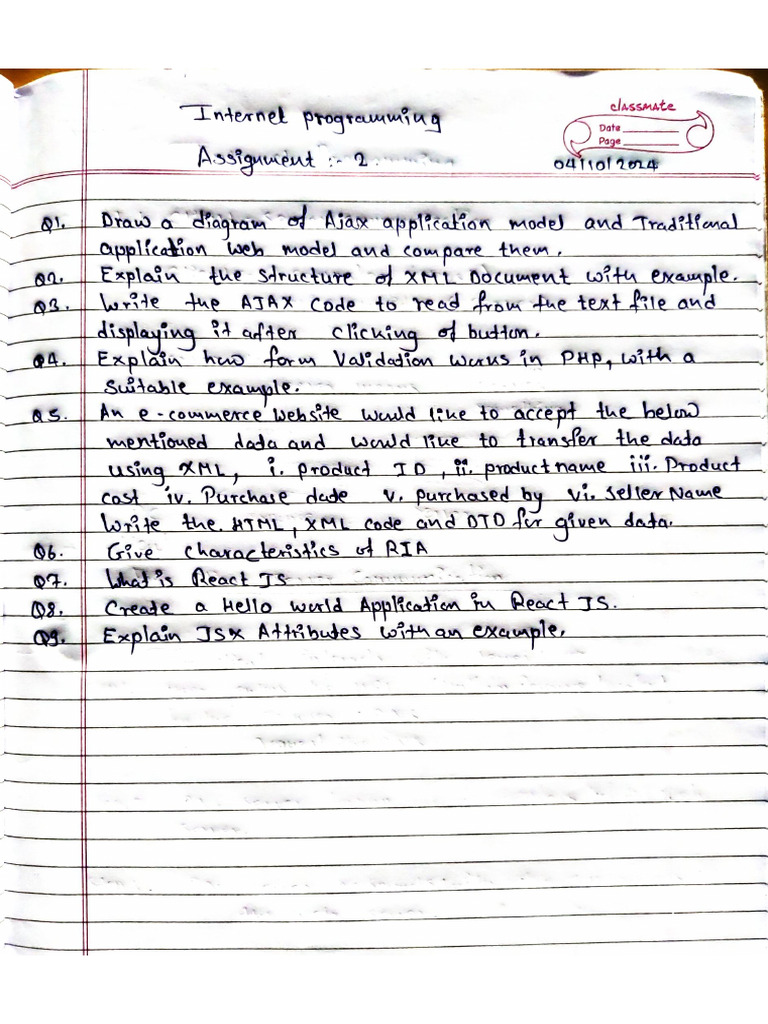 Internet programming
classmate
Date
Page
Assignment :- 2
04/10/2024
Q1. Draw a diagram of Ajax application model and Traditional
application web model and compare them.
Q2. Explain the structure of XML Document with example.
Q3. Write the AJAX code to read from the text file and
displaying it after clicking of button.
Q4. Explain how form Validation works in PHP, with a
suitable example.
Q5. An e-commerce website would like to accept the below
mentioned data and would like to transfer the data
using XML, i. product ID, ii. product name iii. Product
cost iv. Purchase date v. purchased by vi. seller Name
Write the HTML, XML code and DTD for given data.
Q6. Give characteristics of RIA
Q7. What is React JS
Q8. Create a Hello world Application in React JS.
Q9. Explain JSX Attributes with an example.